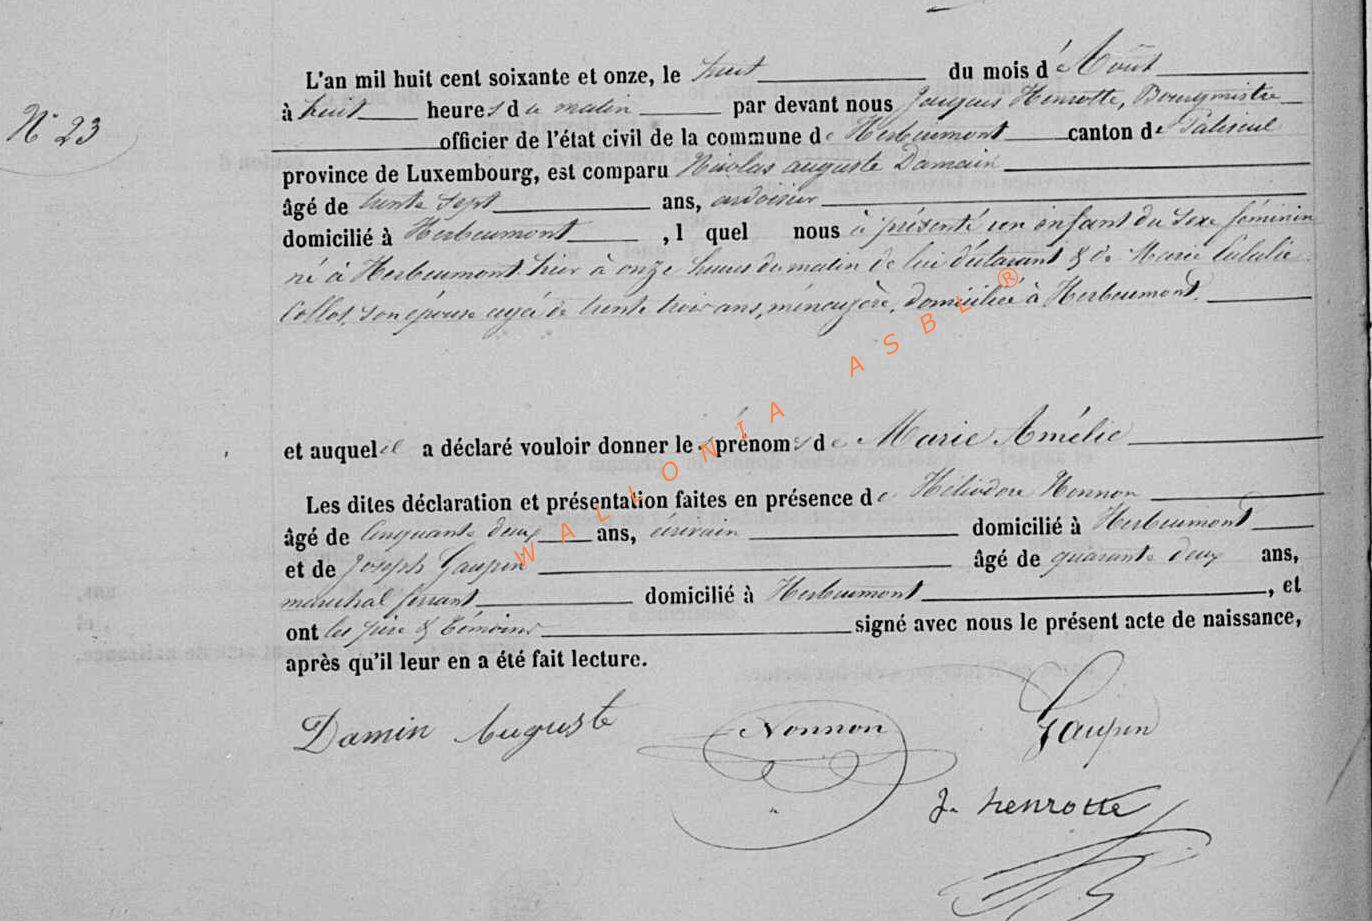 L'an mil huit cent soixante et onze, le huit du mois d'Août
N° 23
à huit heures du matin par devant nous Jacques Henrotte, Bourgmistre
officier de l'état civil de la commune de Herbeumont canton de Paliseul
province de Luxembourg, est comparu Nicolas auguste Damain
âgé de trente sept ans, ardoisier
domicilié à Herbeumont, lequel nous à présenté un enfant du sexe féminin
né à Herbeumont hier à onze heures du matin de lui déclarant & de Marie Eulalie
Collot, son épouse agée de trente trois ans, ménagère, domiciliée à Herbeumont.
et auquel il a déclaré vouloir donner les prénoms de Marie Amélie
Les dites déclaration et présentation faites en présence de Héliodore Nonnon
âgé de Cinquante deux ans, écrivain domicilié à Herbeumont
et de Joseph Gaupin âgé de quarante deux ans,
maréchal ferrant domicilié à Herbeumont, et
ont les père & témoins signé avec nous le présent acte de naissance,
après qu'il leur en a été fait lecture.
Damin Auguste Nonnon Gaupin
J. henrotte
WALLONIA ASBL ®